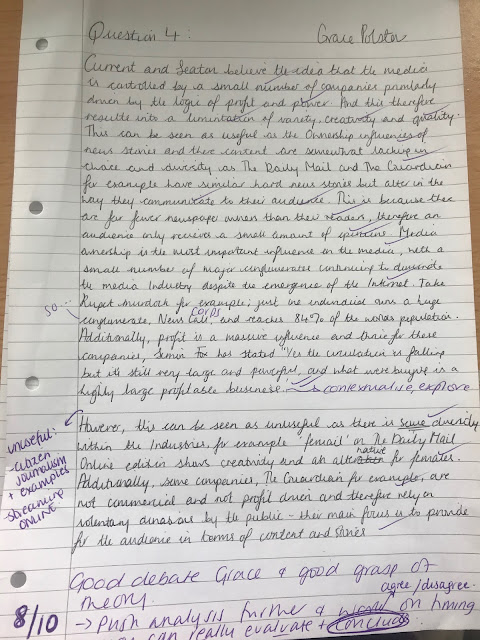 Question 4: Grace Polston
Current and Seaton believe the idea that the media
is controlled by a small number of companies primarily
driven by the logic of profit and power. And this therefore
results into a limitation of variety, creativity and quality.
This can be seen as useful as the Ownership influences of
news stories and there content are somewhat lacking in
choice and diversity as The Daily Mail and The Guardian
for example have similar hard news stories but alter in the
way they communicate to their audience. This is because there
are far fewer newspaper owners than their readers, therefore an
audience only receives a small amount of opinions. Media
ownership is the most important influence on the media, with a
small number of major conglomerates continuing to dominate
the media Industry despite the emergence of the Internet. Take
so...
Rupert Murdoch for example; just one individual runs a huge
corps
conglomerate, News, and reaches 84% of the worlds population.
Additionally, profit is a massive influence and thrive for these
companies, Fox has stated "Yes the circulation is falling
but its still very large and powerful, and what were buying is a
highly large profitable business." → contextualise, explore
However, this can be seen as unuseful as there is some diversity
within the Industries, for example 'femail' on The Daily Mail
native
Online edition shows creativity and an alter for females.
Additionally, some companies, The Guardian for example, are
not commercial and not profit driven and therefore rely on
voluntary donations by the public - their main focus is to provide
for the audience in terms of content and stories
unuseful:
- citizen
journalism
+ examples
streaming
ONLINE
Good debate Grace & good grasp of
theory. agree/disagree.
8/10
→ Push analysis further & on timing
can really evaluate + conclude